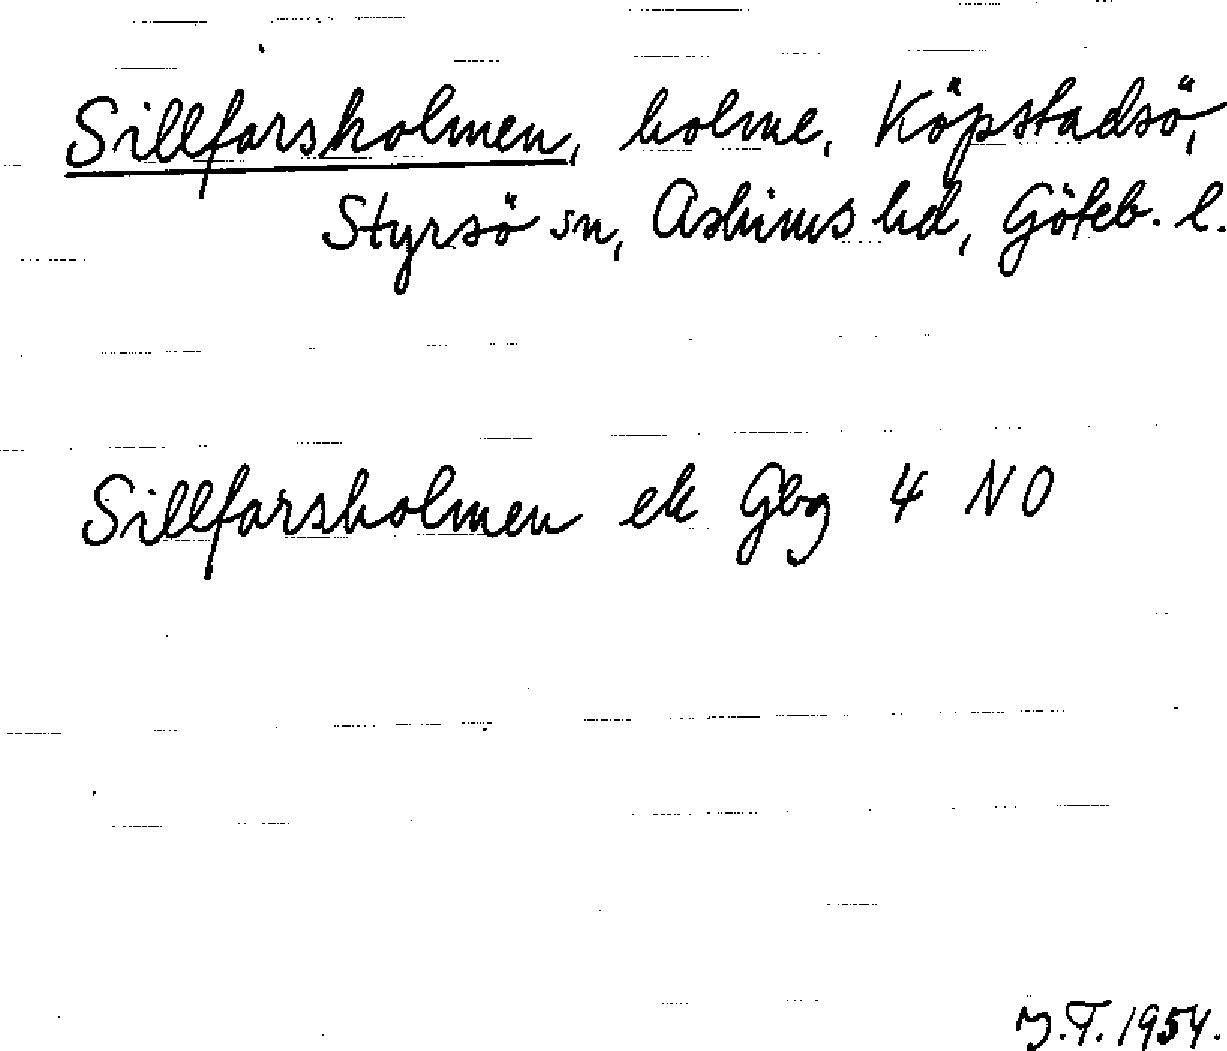 Sillfarsholmen, holme, Köpstadsö,
Styrsö sn, Askims hd, Göteb. l.
Sillfarsholmen ek Gbg 4 NO
J.T. 1954.